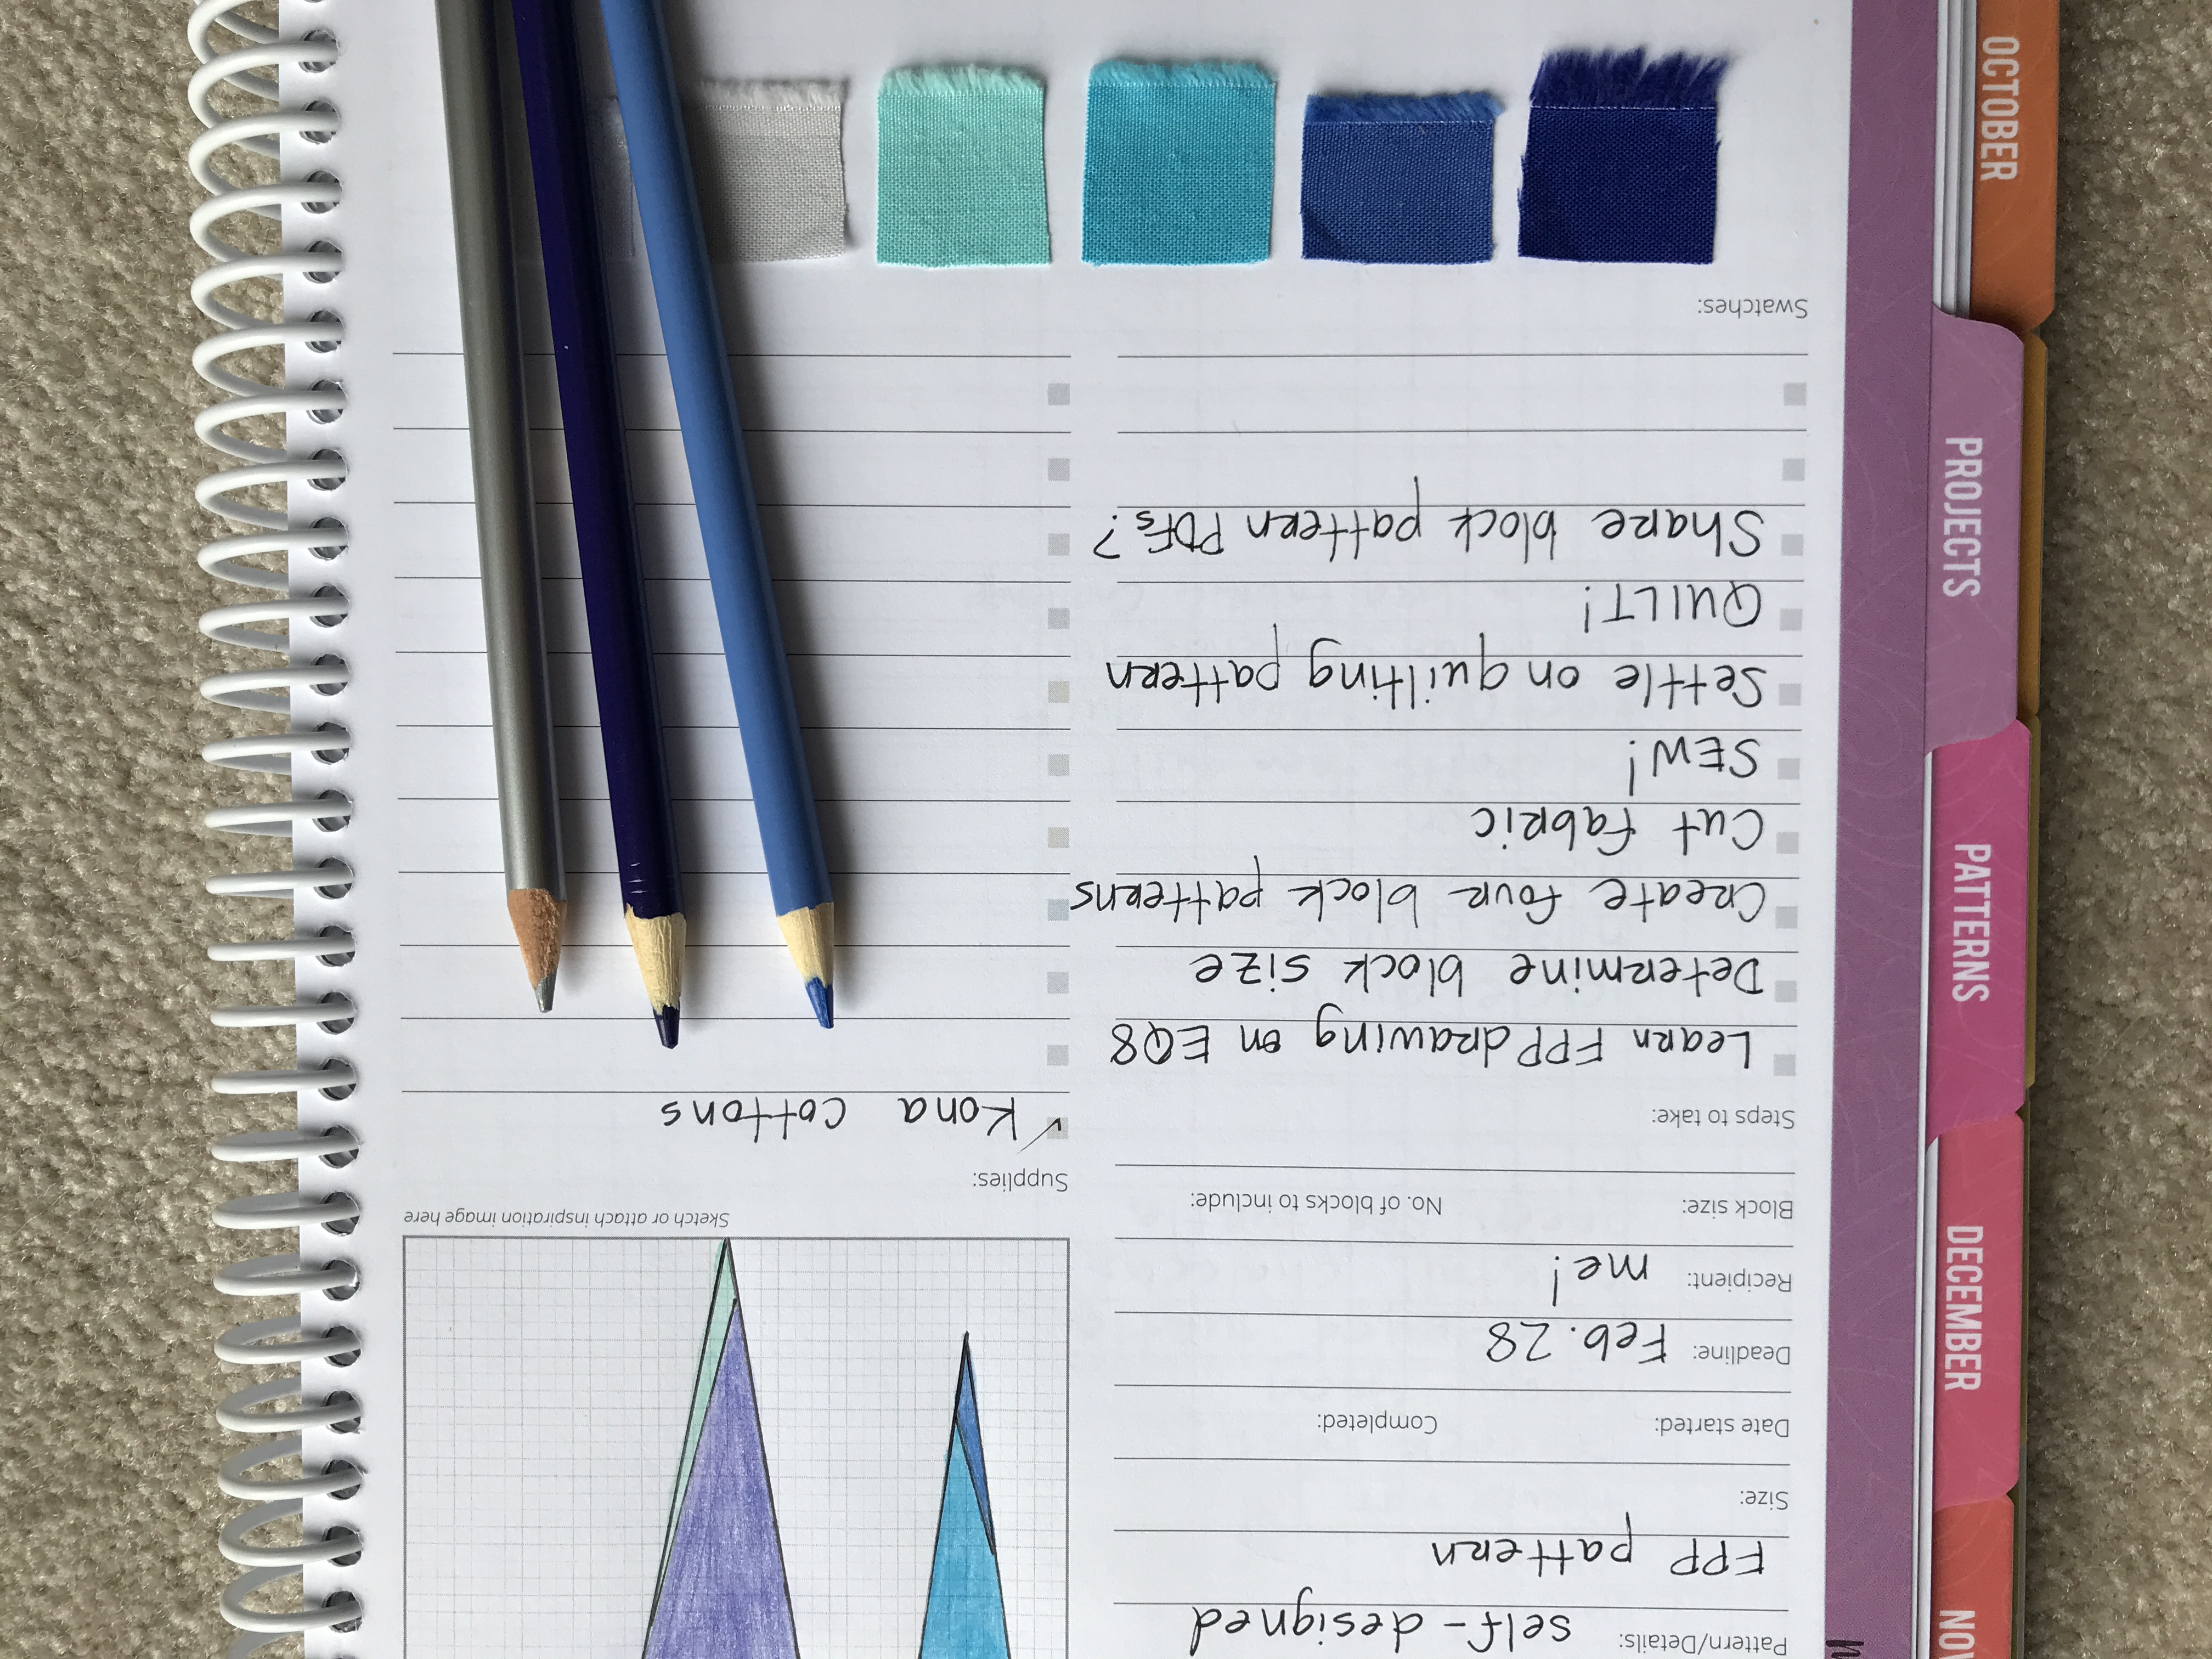 Pattern/Details: self-designed
FPP pattern
Size:
Date started: Completed:
Deadline: Feb. 28
Recipient: me!
Block size: No. of blocks to include:
Steps to take:
Learn FPP drawing on EQ8
Determine block size
Create four block patterns
Cut fabric
SEW!
Settle on quilting pattern
QUILT!
Share block pattern PDFs?
Swatches:
Sketch or attach inspiration image here
Supplies:
✓ Kona Cottons
OCTOBER
PROJECTS
PATTERNS
DECEMBER
NOV